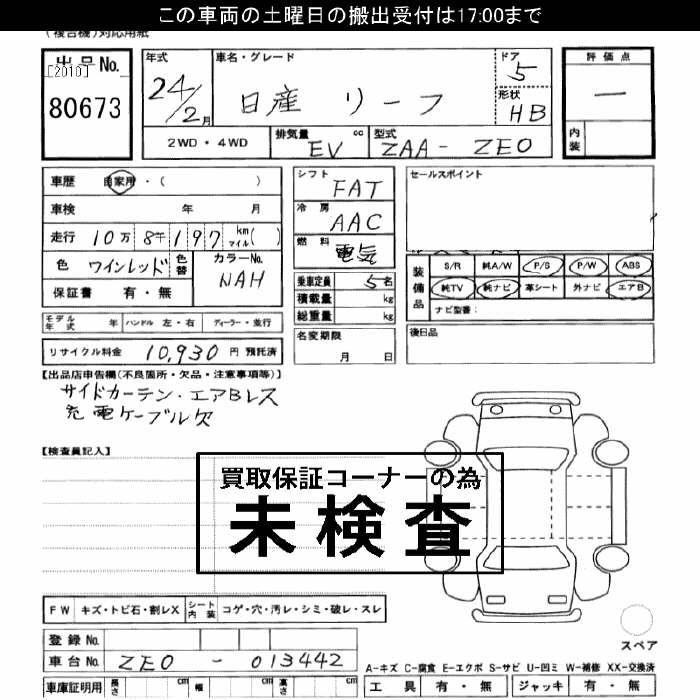 この車両の土曜日の搬出受付は17:00まで
(複合機)対応用紙
出品No.
[2010]
80673
年式
24/2月
車名・グレード
日産 リーフ
ドア
5
形状
HB
評価点
―
内装
2WD・4WD
排気量 cc
EV
型式
ZAA - ZE0
車歴 自家用・( )
車検 年 月
走行 10万 8千 1 9 7 km マイル( )
色 ワインレッド 色替
カラーNo.
NAH
保証書 有・無
モデル年式 年 ハンドル 左・右 ディーラー・並行
リサイクル料金 10,930 円 預託済
シフト
FAT
冷房
AAC
燃料
電気
乗車定員 5名
積載量 kg
総重量 kg
名変期限
月 日
セールスポイント
装備品
S/R 純A/W P/S P/W ABS
純TV 純ナビ 革シート 外ナビ エアB
ナビ型番:
後日品
【出品店申告欄(不良箇所・欠品・注意事項等)】
サイドカーテン・エアBレス
充電ケーブル欠
【検査員記入】
買取保証コーナーの為
未検査
FW キズ・トビ石・割レX シート内装 コゲ・穴・汚レ・シミ・破レ・スレ
登録No.
車台No. ZE0 - 013442
車庫証明用 長さ cm 幅 cm 高さ cm
スペア
A-キズ C-腐食 E-エクボ S-サビ U-凹ミ W-補修 XX-交換済
工具 有・無 ジャッキ 有・無